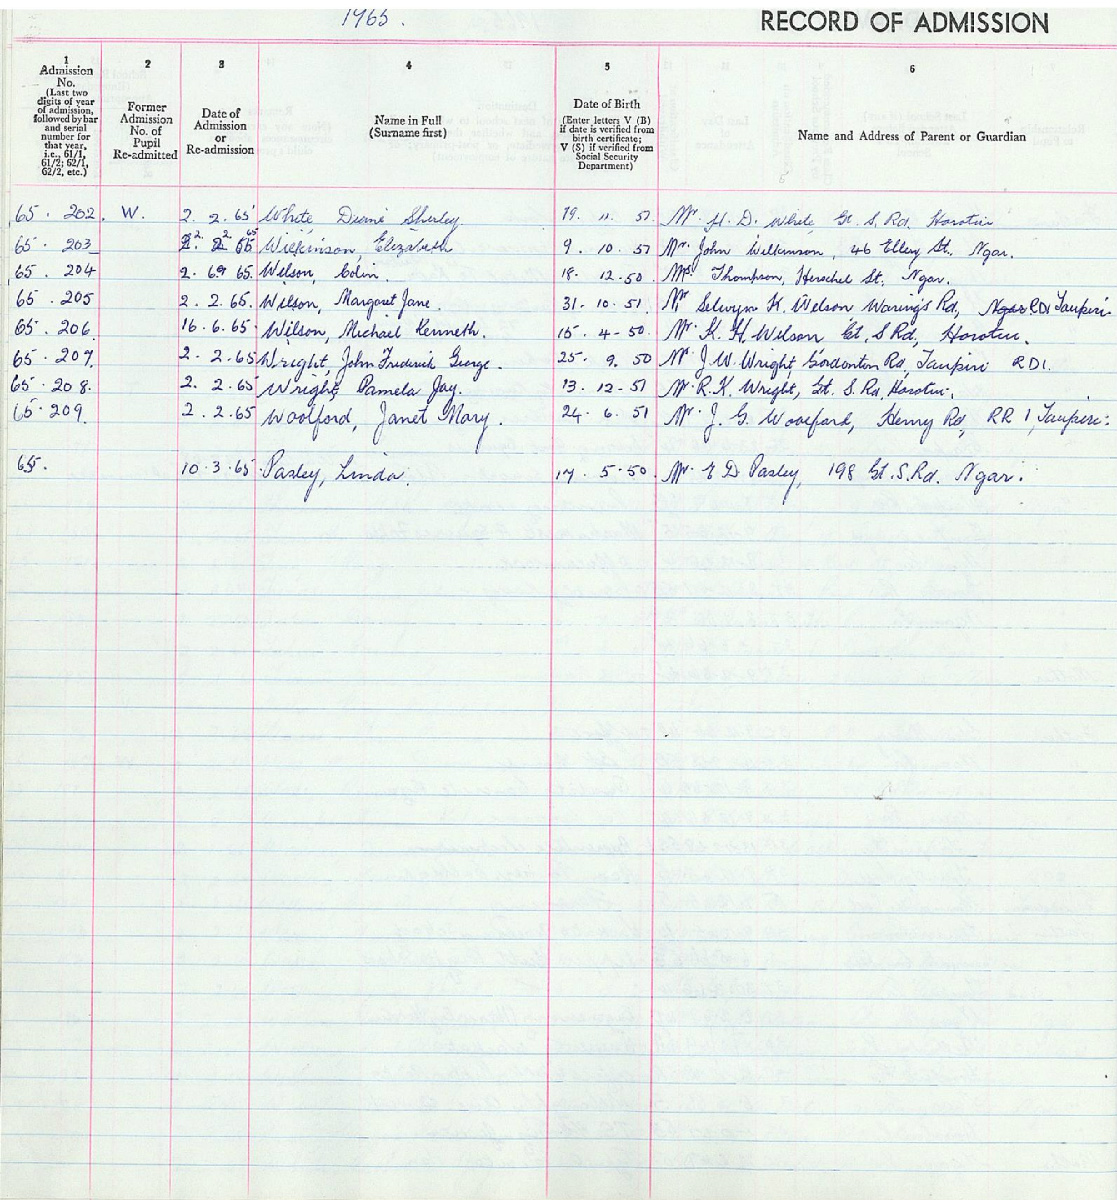 1965. RECORD OF ADMISSION
1 2 3 4 5 6
Admission No. (Last two digits of year of admission, followed by bar and serial number for that year, i.e., 61/1, 61/2; 62/1, 62/2, etc.)
Former Admission No. of Pupil Re-admitted
Date of Admission or Re-admission
Name in Full (Surname first)
Date of Birth (Enter letters V (B) if date is verified from birth certificate; V (S) if verified from Social Security Department)
Name and Address of Parent or Guardian
65 . 202 W. 2. 2. 65 White Diane Shirley 19. 11. 51. Mr. H. D. White Gt. S. Rd. Horotiu
65 . 203 2. 2. 65 Wilkinson, Elizabeth 9. 10. 51 Mr. John Wilkinson, 46 Ellery St., Ngar.
65 . 204 2. 65. Wilson, Colin. 18. 12-50. Mrs Thompson, Herschel St., Ngar.
65 . 205 2. 2. 65. Wilson, Margaret Jane. 31. 10. 51 Mr Selwyn K. Wilson Warings Rd, RD1 Taupiri.
65 . 206 16. 6. 65. Wilson, Michael Kenneth. 15. 4-50. Mr. K. H. Wilson Gt. S Rd, Horotiu.
65 . 207. 2. 2. 65 Wright, John Frederick George. 25. 9. 50 Mr J. W. Wright, Gordonton Rd, Taupiri RD1.
65 . 208. 2. 2. 65 Wright, Pamela Jay. 13. 12-51 Mr. R. K. Wright, Gt. S. Rd, Horotiu.
65 . 209. 2. 2. 65 Woolford, Janet Mary. 24. 6. 51 Mr. J. G. Woolford, Henry Rd, RR 1, Taupiri.
65. 10. 3. 65. Pasley, Linda. 17. 5-50. Mr. E D. Pasley, 198 Gt. S. Rd. Ngar.